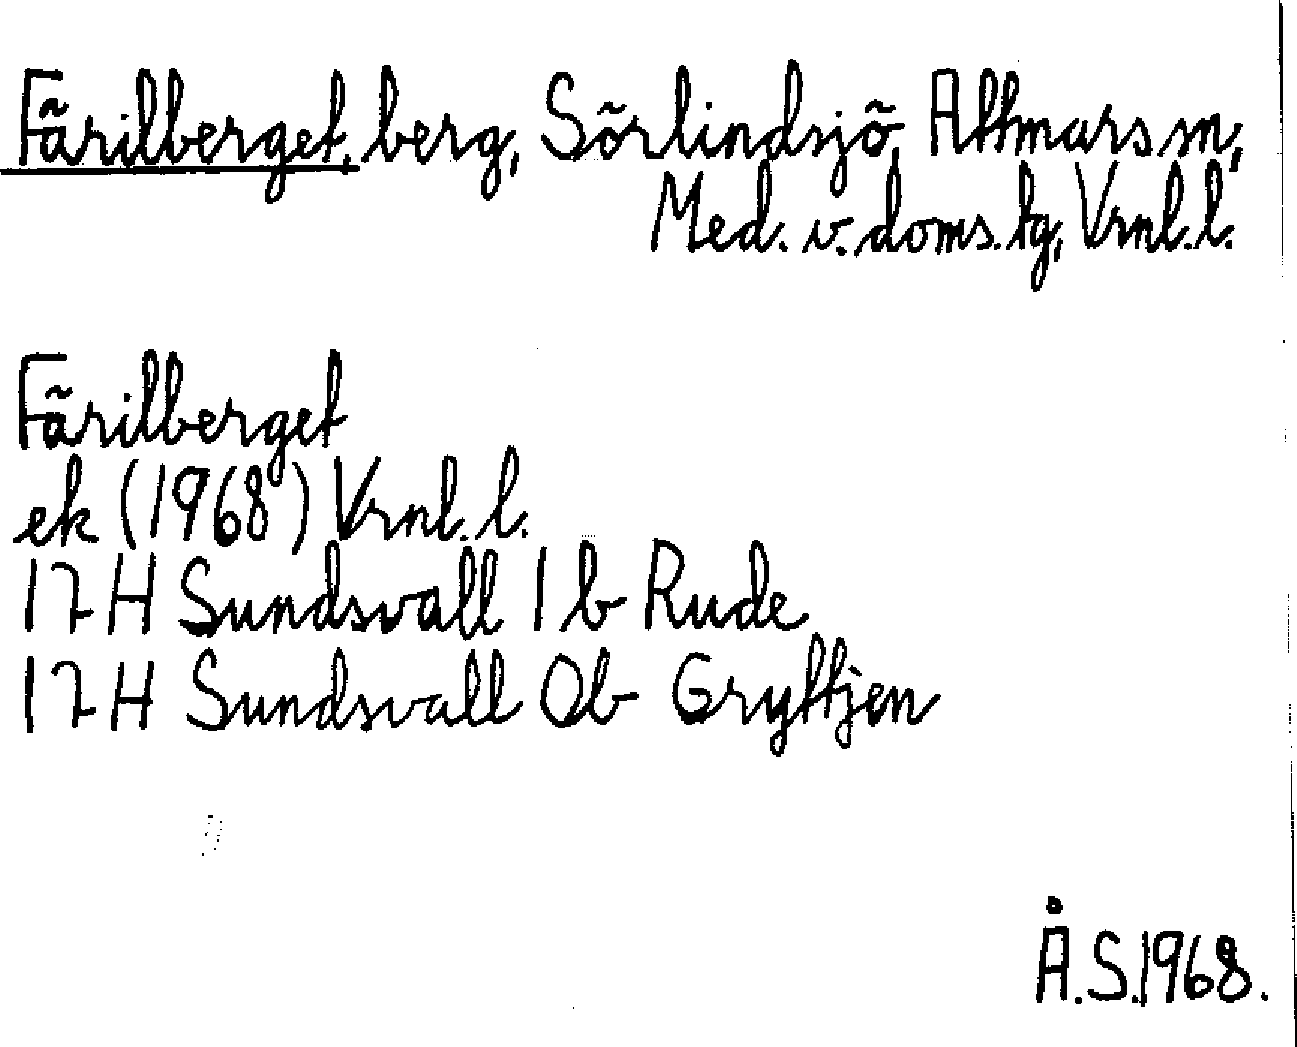 Färilberget, berg, Sörlindsjö, Attmars sn,
Med. v. doms. tg, Vrnl. l.
Färilberget
ek (1968) Vrnl. l.
17 H Sundsvall 1 b Rude
17 H Sundsvall 0b Gryttjen
Å.S.1968.